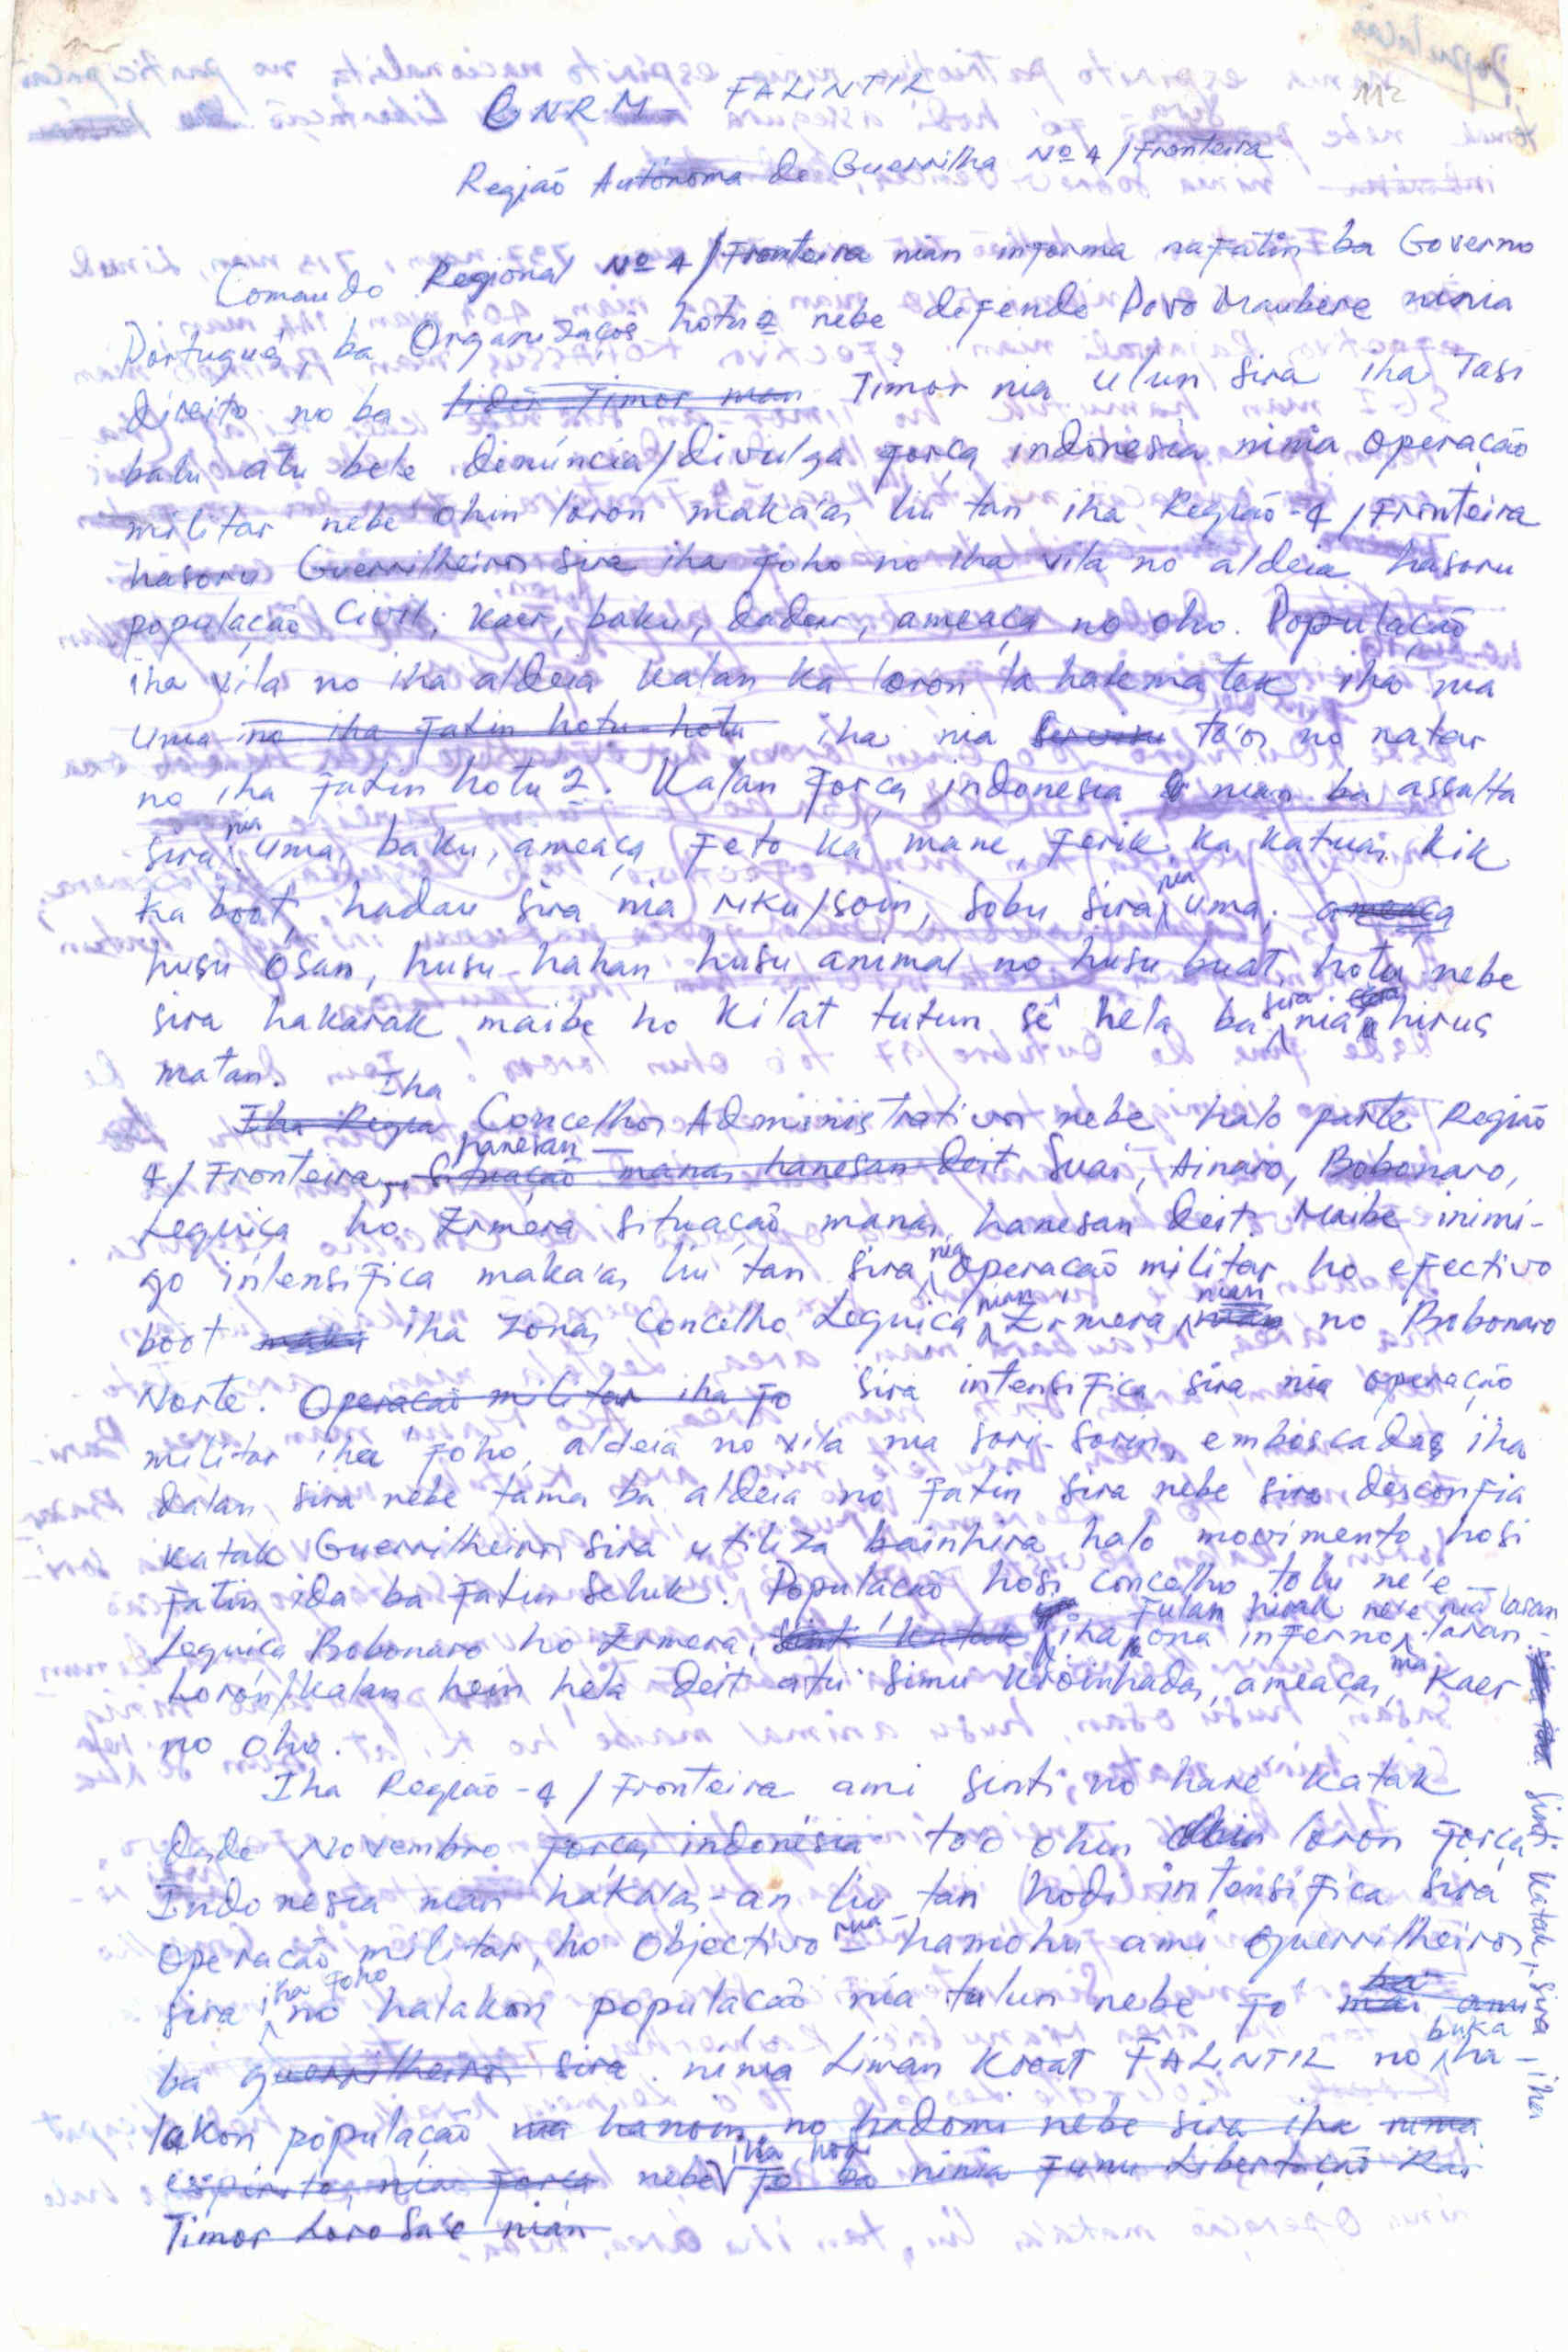 112
CNRM FALINTIL
Região Autónoma de Guerrilha Nº 4 / Fronteira
Comando Regional Nº 4 / Fronteira nian informa nafatin ba Governo
Português, ba Organizações hotu2 nebe defende Povo Maubere ninia
direito no ba Timor nia ulun sira iha Tasi
balu atu bele denúncia/divulga força indonesia ninia operação
militar nebe ohin loron maka'as liu tan iha Região-4 / Fronteira
hasoru Guerrilheiros sira iha foho no iha vila no aldeia hasoru
população Civil; kaer, baku, dadur, ameaça no oho. População
iha vila no iha aldeia kalan ka loron la hakmatek iha nia
uma no iha fatin hotu-hotu iha nia to'os no natar
no iha fatin hotu2. Kalan força indonesia nian ba assalta
sira nia uma, baku, ameaça feto ka mane, ferik ka katuas kik
ka boot, hadau sira nia riku/soin, sobu sira nia uma, ameaça
husu ósan, husu hahan husu animal no husu buat hotu nebe
sira hakarak maibe ho kilat tutun sê hela ba sira nia hirus
matan.
Iha Concelhos Administrativos nebe halo parte Região
4 / Fronteira, hanesan Situação manas hanesan deit Suai, Ainaro, Bobonaro,
Lequiça ho Ermera situação manas hanesan deit. Maibe inimi-
go intensifica maka'as liu tan sira nia operação militar ho efectivo
boot iha zonas Concelho Lequiça nian, Ermera nian no Bobonaro
Norte. Operação militar iha fo sira intensifica sira nia operação
militar iha foho, aldeia no vila nia sori-sorin, emboscadas iha
dalan sira nebe tama ba aldeia no fatin sira nebe sira desconfia
katak Guerrilheiros sira utiliza bainhira halo movimento hosi
fatin ida ba fatin seluk. População hosi concelho tolu ne'e -
Lequiça Bobonaro ho Ermera, sinti katak iha fulan hirak ne'e nia laran
sinti katak, sira iha
ona inferno laran.
Loron/kalan hein hela deit atu simu kroinhadas, ameaças, kaer
no oho.
Iha Região-4 / Fronteira ami sinti no hare katak
desde Novembro força indonésia to'o ohin loron força
Indonesia nian haka'as-an liu tan hodi intensifica sira
operação militar, ho objectivo rua - hamohu ami guerrilheiros
sira iha foho no halakon população nia tulun nebe fo
ba guerrilheiros sira ninia Liman Kroat FALINTIL no buka ha-
lakon população nia hanoin no hadomi nebe sira iha ninia
espirito, nia força nebe iha hodi fo ba ninia funu Libertação Rai
Timor Loro Sa'e nian